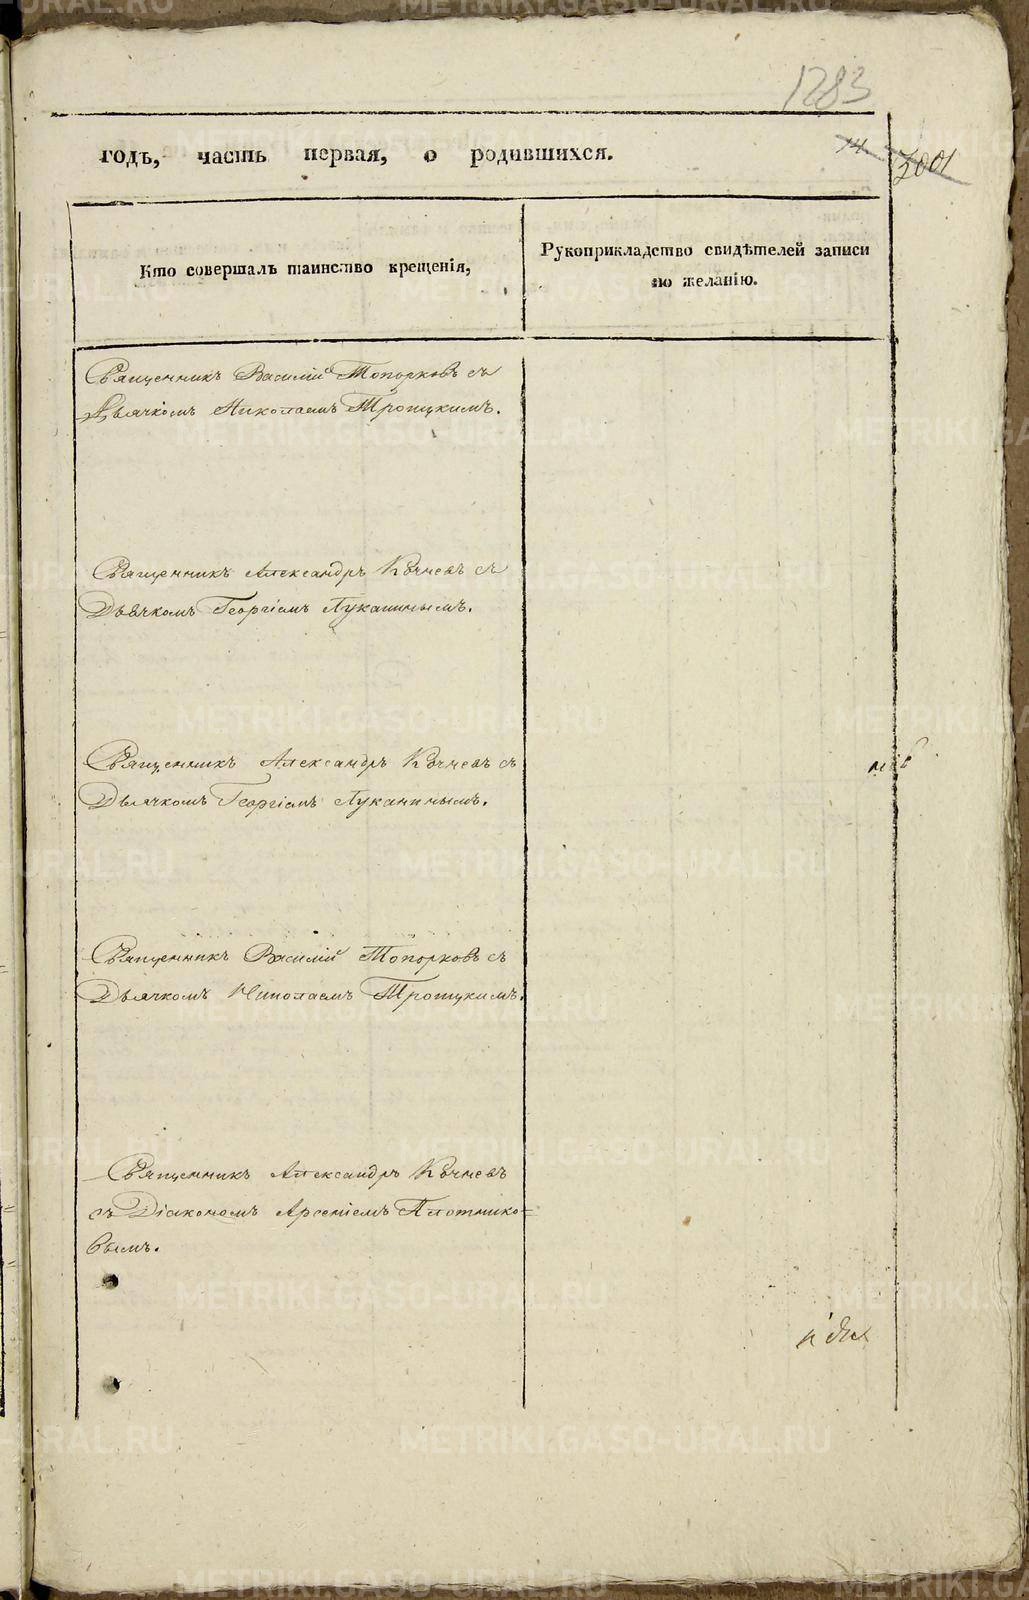 1283
годъ, часть первая, о родившихся.
14. 2001
Кто совершалъ таинство крещенія,
Рукоприкладство свидѣтелей записи
по желанію.
Священникъ Василій Топорковъ съ
Дьячкомъ Николаемъ Троицкимъ.
Священникъ Александръ Кочневъ съ
Дьячкомъ Георгіемъ Луканинымъ.
Священникъ Александръ Кочневъ съ
Дьячкомъ Георгіемъ Луканинымъ.
Священникъ Василій Топорковъ съ
Дьячкомъ Николаемъ Троицкимъ.
Священникъ Александръ Кочневъ
съ Діакономъ Арсеніемъ Плотнико-
вымъ.
METRIKI.GASO-URAL.RU